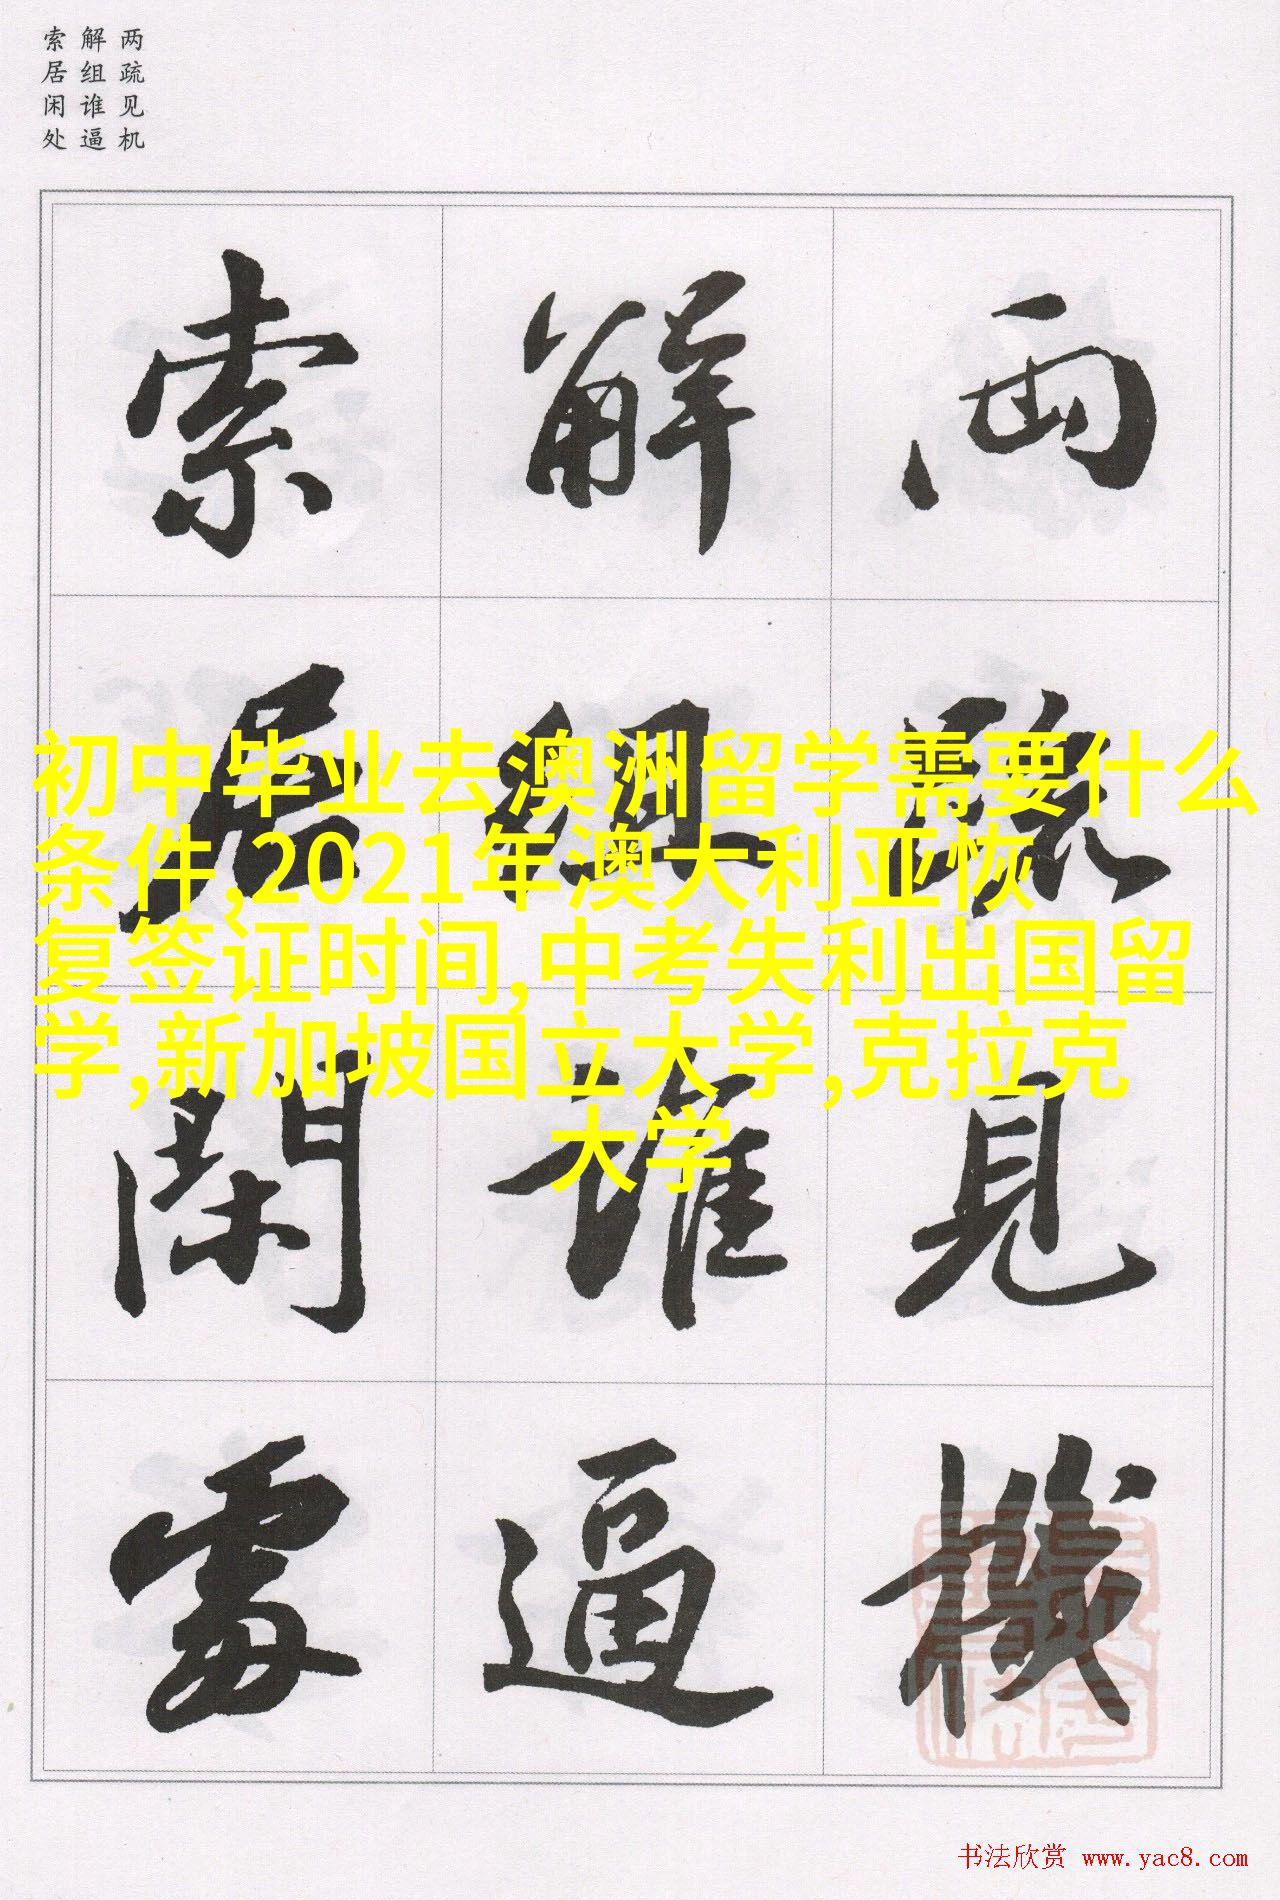 两疏见机
解组谁逼
索居闲处
兩疏見機
解組誰逼
索居閑處
初中毕业去澳洲留学需要什么
条件,2021年澳大利亚恢
复签证时间,中考失利出国留
学,新加坡国立大学,克拉克
大学
书法欣赏 www.yac8.com